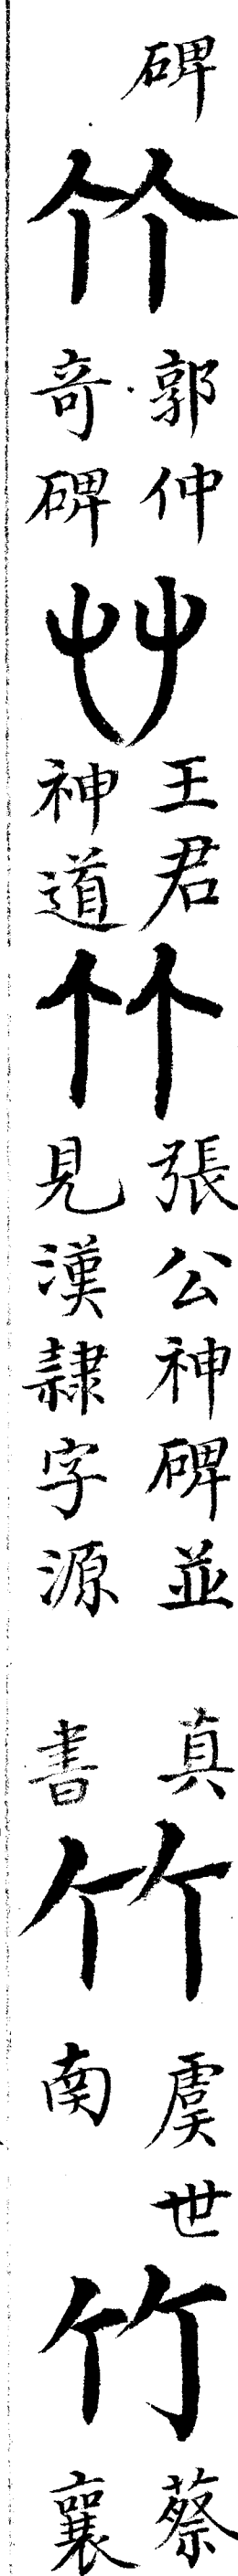 碑
竹
郭仲
奇碑
竹
王君
神道
竹
張公神碑並
見漢隸字源
真
書
竹
虞世
南
竹
蔡
襄